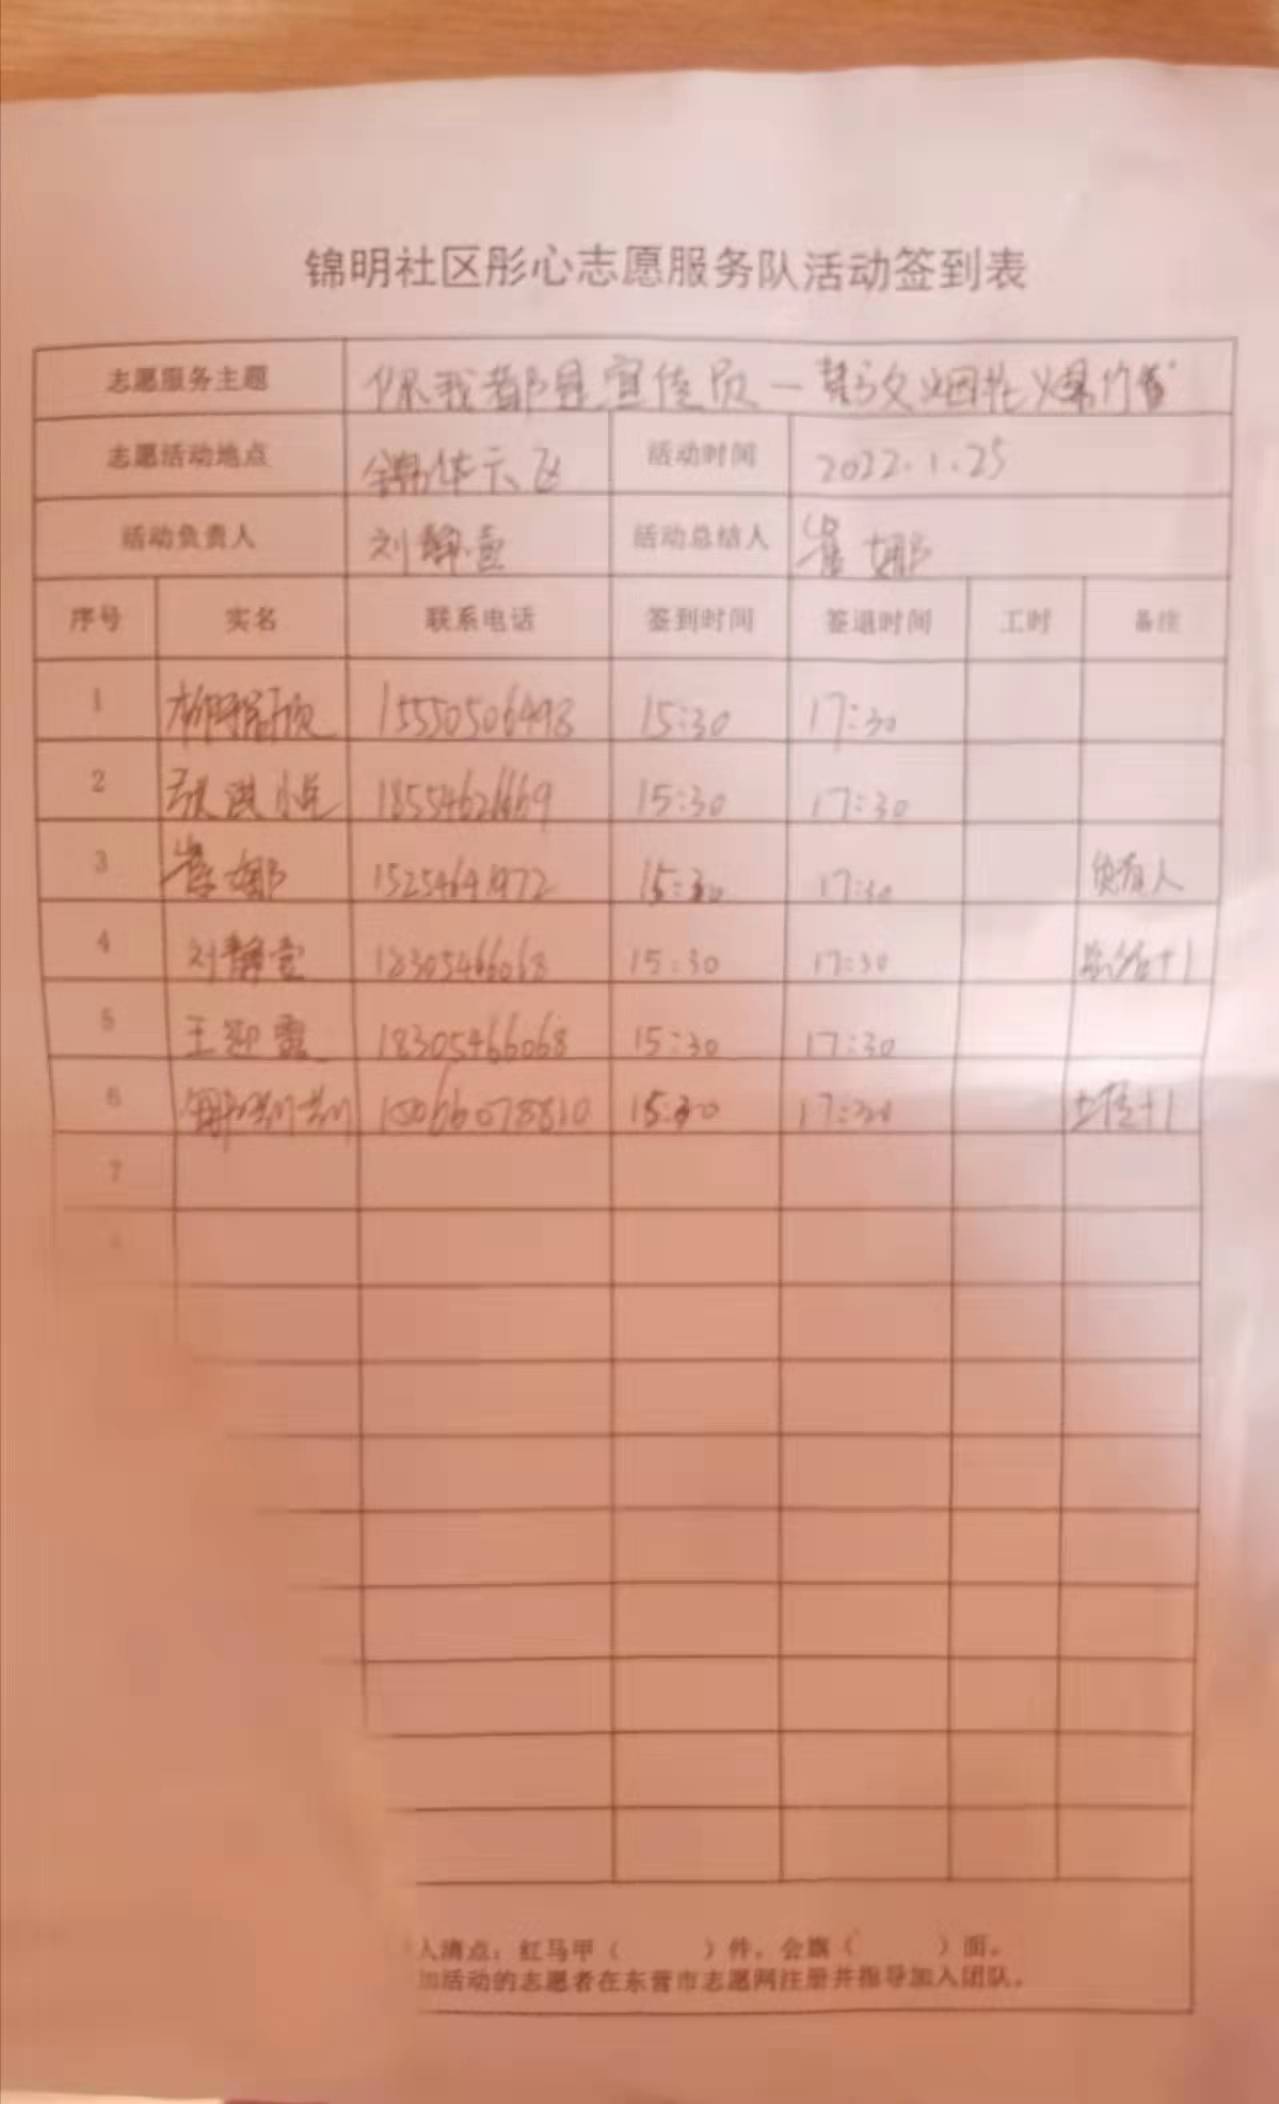 锦明社区彤心志愿服务队活动签到表
志愿服务主题 你我都是宣传员一禁放烟花爆竹
志愿活动地点 锦华云飞 活动时间 2022.1.25
活动负责人 刘静 活动总结人 崔娜
序号 实名 联系电话 签到时间 签退时间 工时 备注
1 15550506498 15:30 17:30
2 15:30 17:30
3 崔娜 15254641972 15:30 17:30 负责人
4 刘静 18305466068 15:30 17:30 总结+1
5 王迎霞 18305466068 15:30 17:30
6 15:30 17:30 +1
7
人清点：红马甲（ ）件，会旗（ ）面。
加活动的志愿者在东营市志愿网注册并指导加入团队。